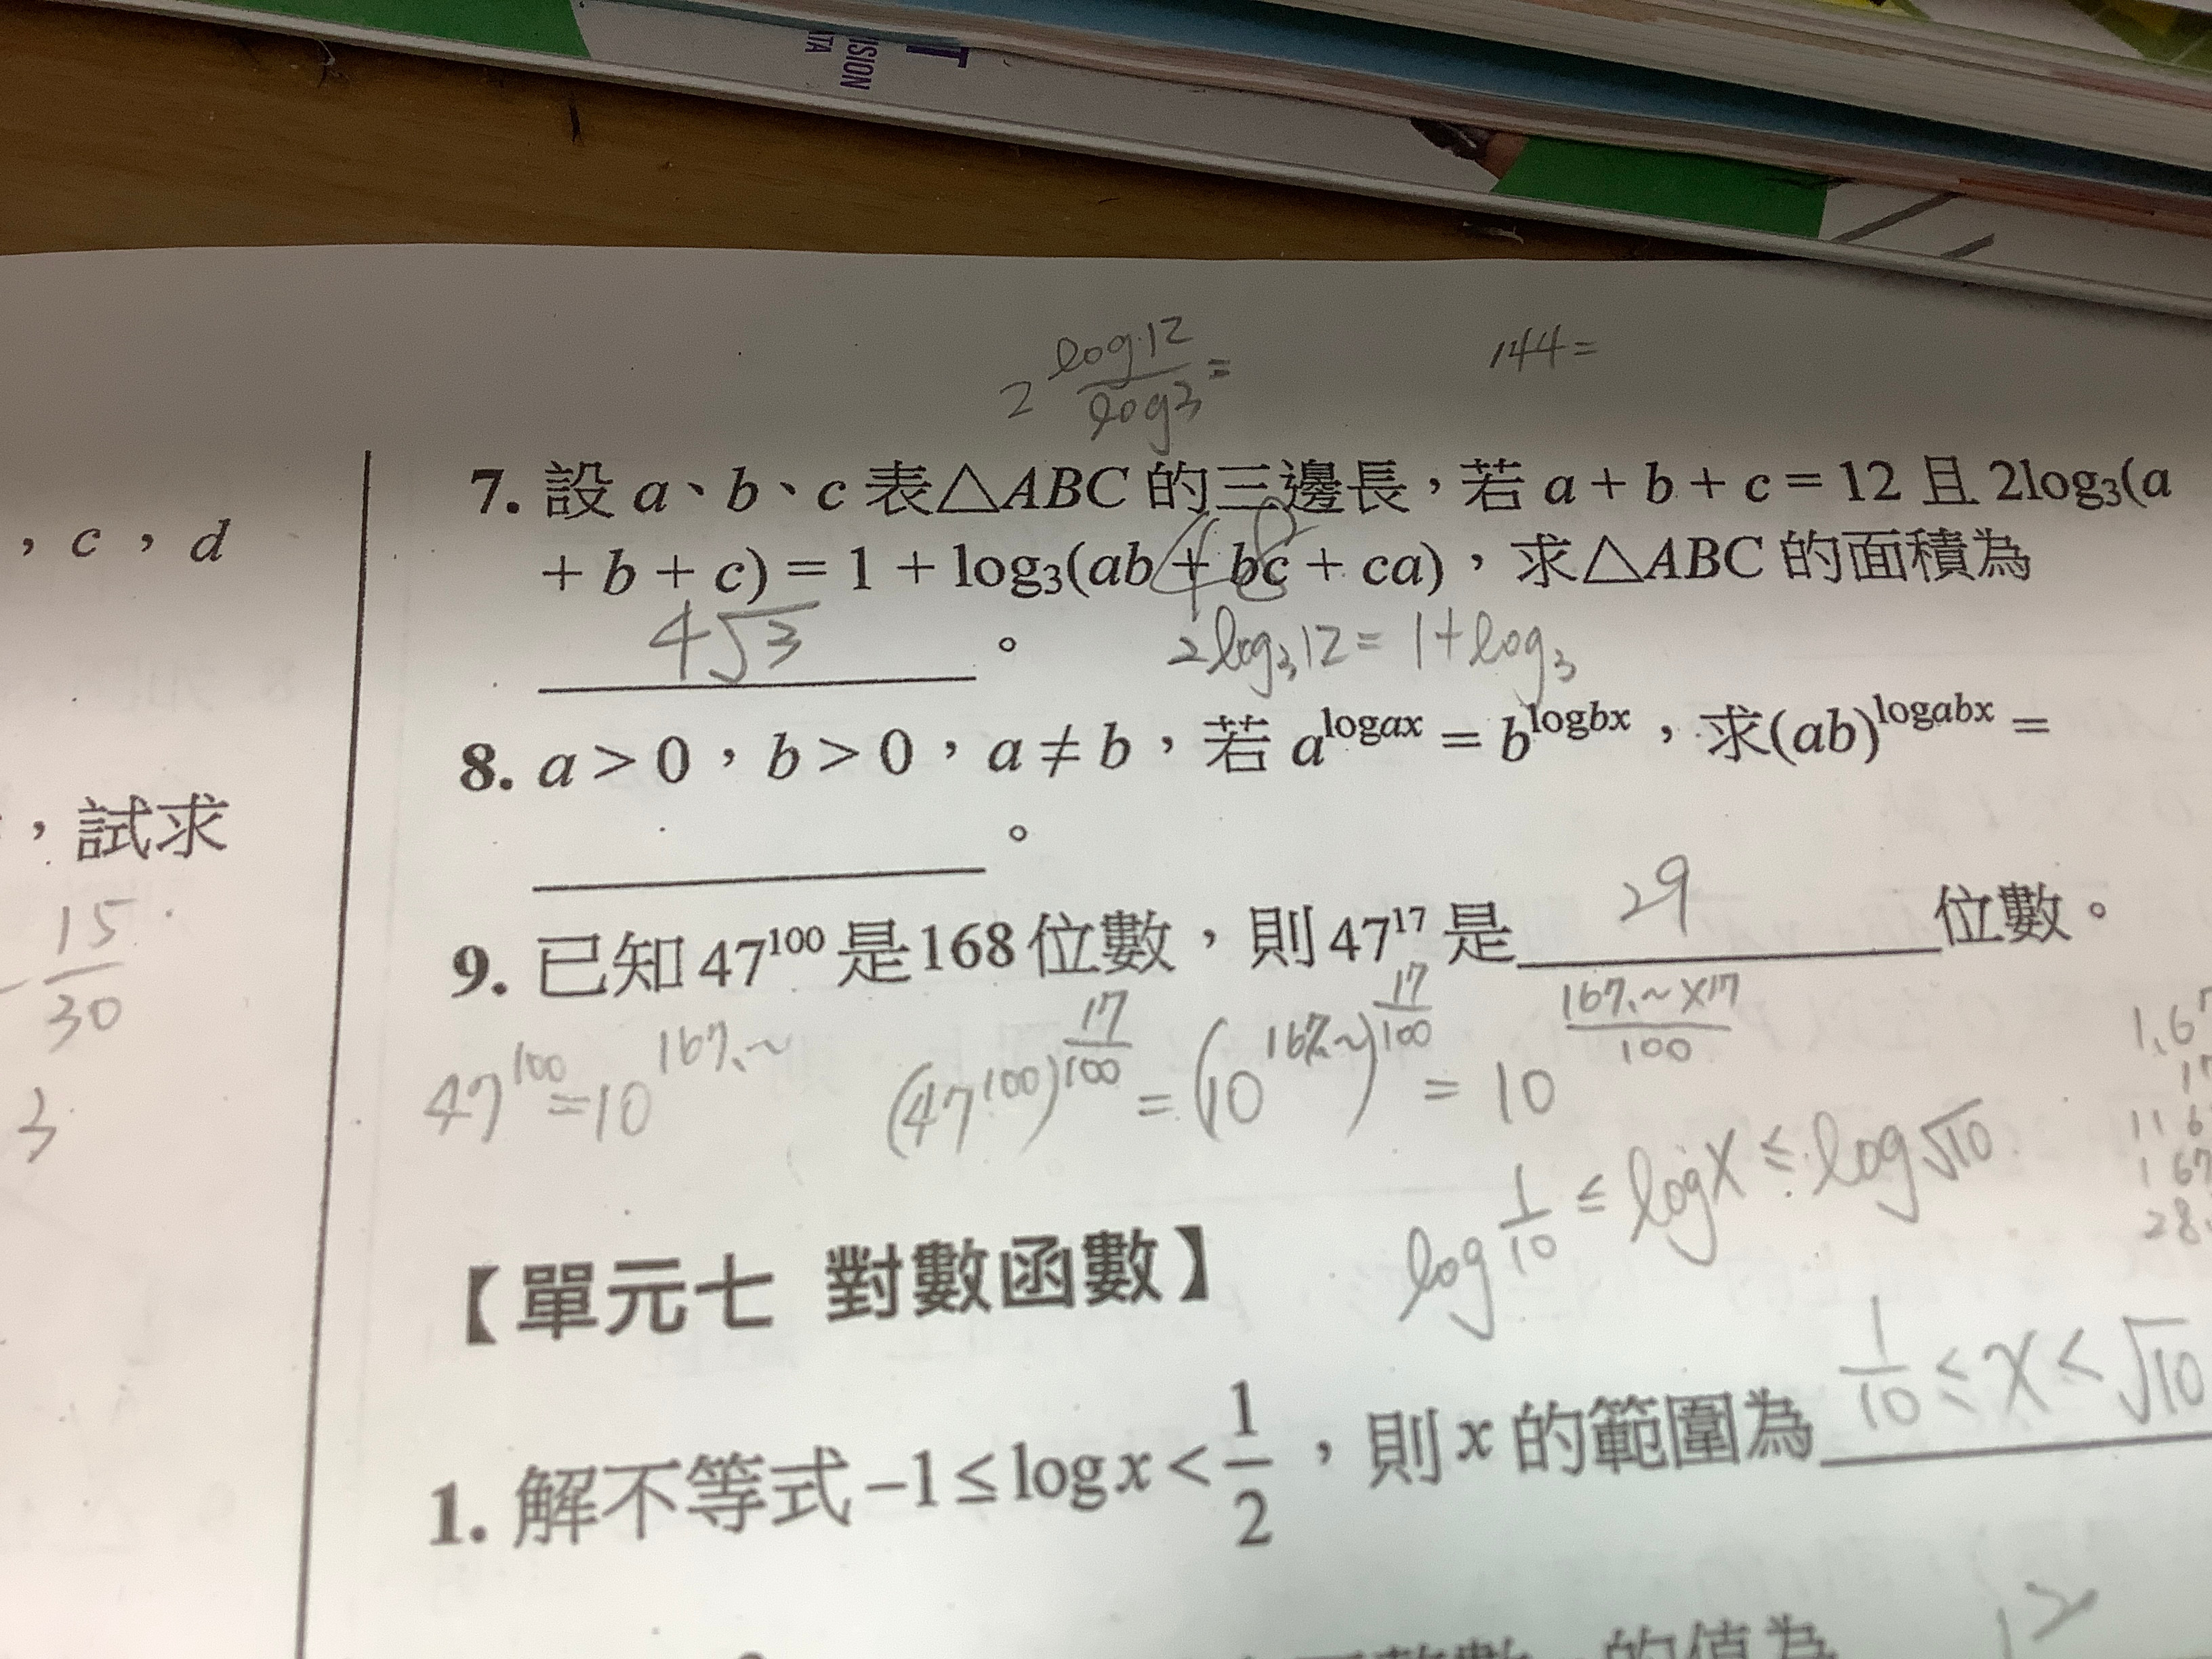 ISION
ATA
T
2 log12/log3 =
144=
7. 設 a、b、c 表△ABC 的三邊長，若 a + b + c = 12 且 2log₃(a
+ b + c) = 1 + log₃(ab + bc + ca)，求△ABC 的面積為
4√3 。
2log₃12 = 1+log₃
8. a > 0，b > 0，a ≠ b，若 a^logax = b^logbx，求(ab)^logabx =
。
9. 已知 47¹⁰⁰ 是 168 位數，則 47¹⁷ 是 29 位數。
47¹⁰⁰=10^167.~ (47¹⁰⁰)^17/100 = (10^167.~)^17/100 = 10^(167.~×17)/100
log 1/10 ≤ logx ≤ log√10
【單元七 對數函數】
1. 解不等式 –1 ≤ log x < 1/2，則 x 的範圍為 1/10 ≤ x < √10
的值為
，c，d
，試求
15/30
3
1.67
17
116
167
28.